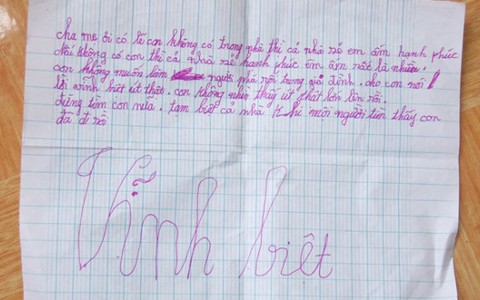 cha mẹ ơi có lẽ con không có trong nhà thì cả nhà sẽ em ấm hạnh phúc
khi không có con thì cả nhà sẽ hạnh phúc êm ấm rất là nhiều.
con không muốn làm người phá rối trong gia đình. cho con nói 1
lời vĩnh biệt út thảo. con không nhìn thấy út phát lớn lên rồi.
đừng tìm con nữa. tạm biệt cả nhà khi mọi người tìm thấy con
đã đi rồi
Vĩnh biệt